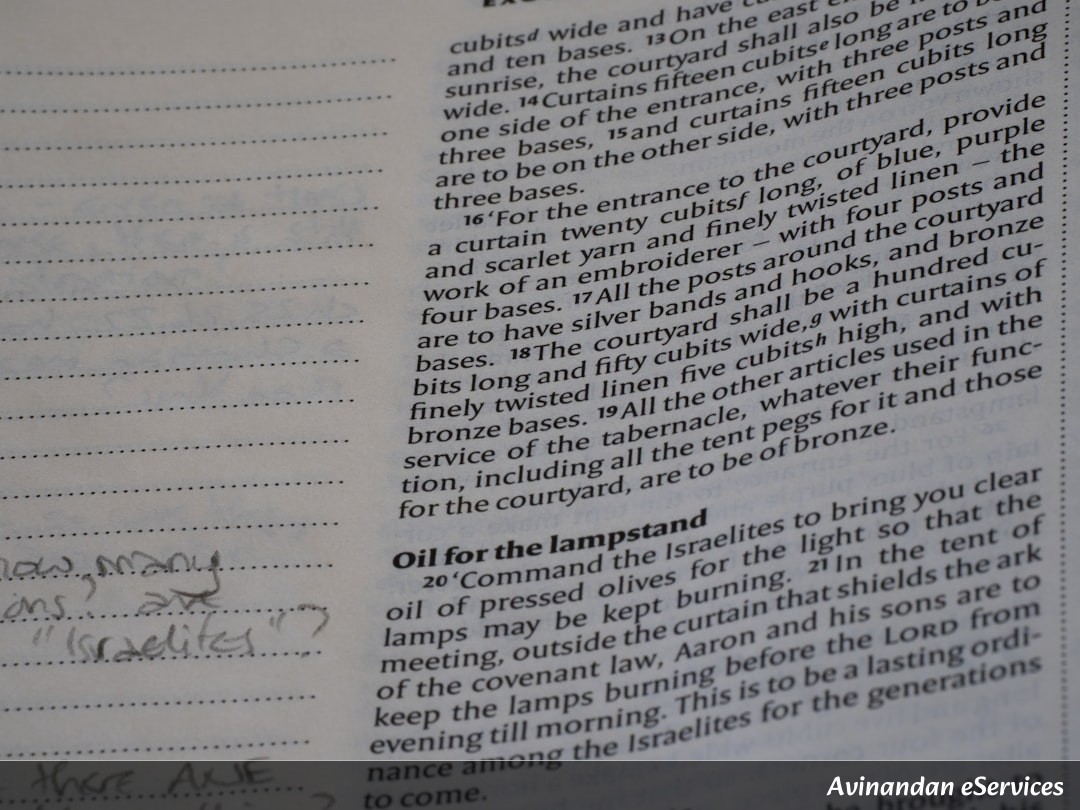 cubitsd wide and have
and ten bases. 13On the east
sunrise, the courtyard shall also be
wide. 14Curtains fifteen cubitse long are to
one side of the entrance, with three posts and
three bases, 15and curtains fifteen cubits long
are to be on the other side, with three posts and
three bases.
16‘For the entrance to the courtyard, provide
a curtain twenty cubitsf long, of blue, purple
and scarlet yarn and finely twisted linen – the
work of an embroiderer – with four posts and
four bases. 17All the posts around the courtyard
are to have silver bands and hooks, and bronze
bases. 18The courtyard shall be a hundred cu-
bits long and fifty cubits wide,g with curtains of
finely twisted linen five cubitsh high, and with
bronze bases. 19All the other articles used in the
service of the tabernacle, whatever their func-
tion, including all the tent pegs for it and those
for the courtyard, are to be of bronze.
Oil for the lampstand
20‘Command the Israelites to bring you clear
oil of pressed olives for the light so that the
lamps may be kept burning. 21In the tent of
meeting, outside the curtain that shields the ark
of the covenant law, Aaron and his sons are to
keep the lamps burning before the LORD from
evening till morning. This is to be a lasting ordi-
nance among the Israelites for the generations
to come.
how many
are
"Israelites"?
there ANE
Avinandan eServices